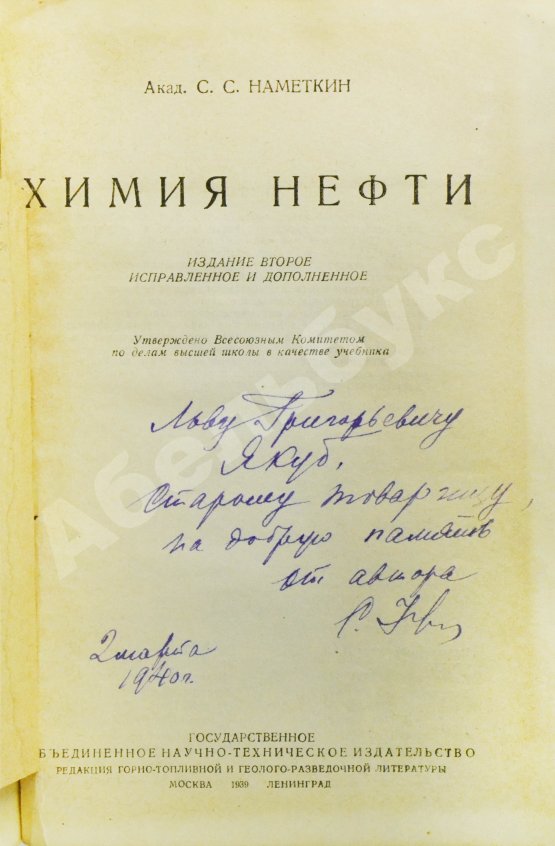 Акад. С. С. НАМЕТКИН
ХИМИЯ НЕФТИ
ИЗДАНИЕ ВТОРОЕ
ИСПРАВЛЕННОЕ И ДОПОЛНЕННОЕ
Утверждено Всесоюзным Комитетом
по делам высшей школы в качестве учебника
Льву Григорьевичу
Якуб,
старому товарищу,
на добрую память
от автора
С.
2 марта
1940 г.
ГОСУДАРСТВЕННОЕ
БЪЕДИНЕННОЕ НАУЧНО-ТЕХНИЧЕСКОЕ ИЗДАТЕЛЬСТВО
РЕДАКЦИЯ ГОРНО-ТОПЛИВНОЙ И ГЕОЛОГО-РАЗВЕДОЧНОЙ ЛИТЕРАТУРЫ
МОСКВА 1939 ЛЕНИНГРАД
Абельбукс